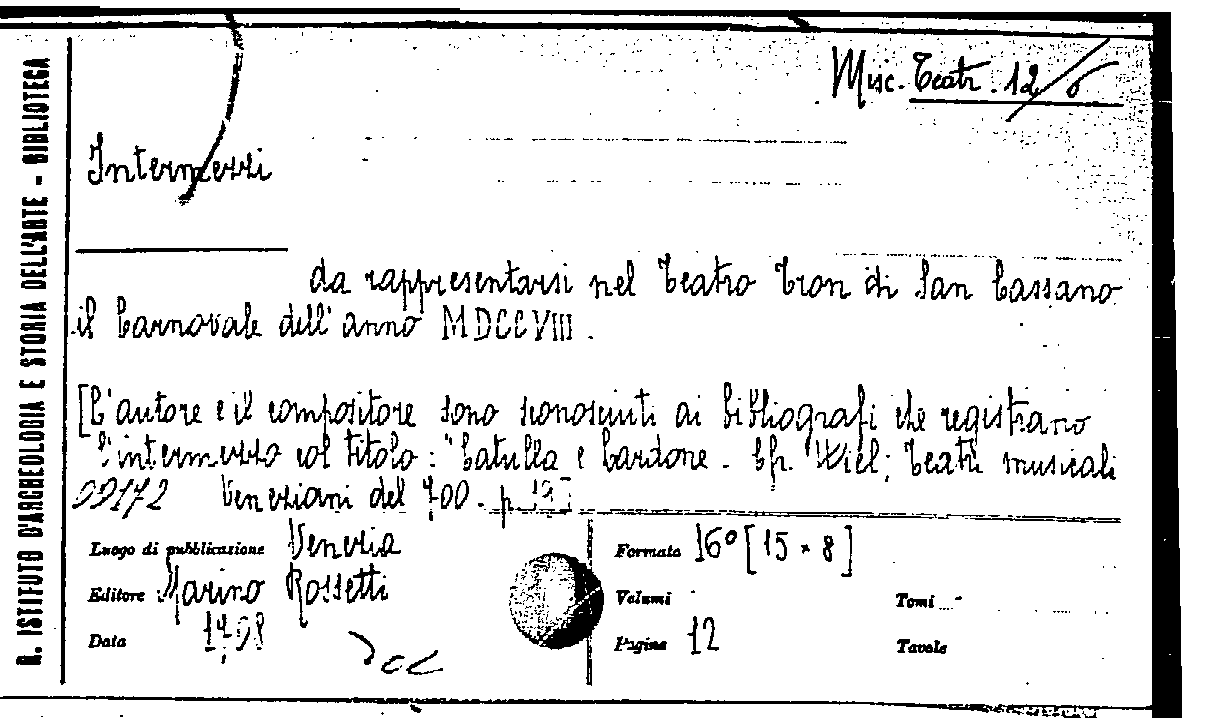 Misc. Teatr. 12/6
R. ISTITUTO D'ARCHEOLOGIA E STORIA DELL'ARTE - BIBLIOTECA
Intermezzi
da rappresentarsi nel Teatro Tron di San Cassano
il Carnovale dell'anno MDCCVIII.
[L'autore e il compositore sono sconosciuti ai bibliografi che registrano
l'intermezzo col titolo: "Catulla e Cardone. Cfr. Wiel; Teatri musicali
09172 Veneziani del 700. p.
Luogo di pubblicazione Venezia
Formato 16° [15 × 8]
Editore Marino Rossetti
Volumi
Tomi
Data 1708
Pagine 12
Tavole